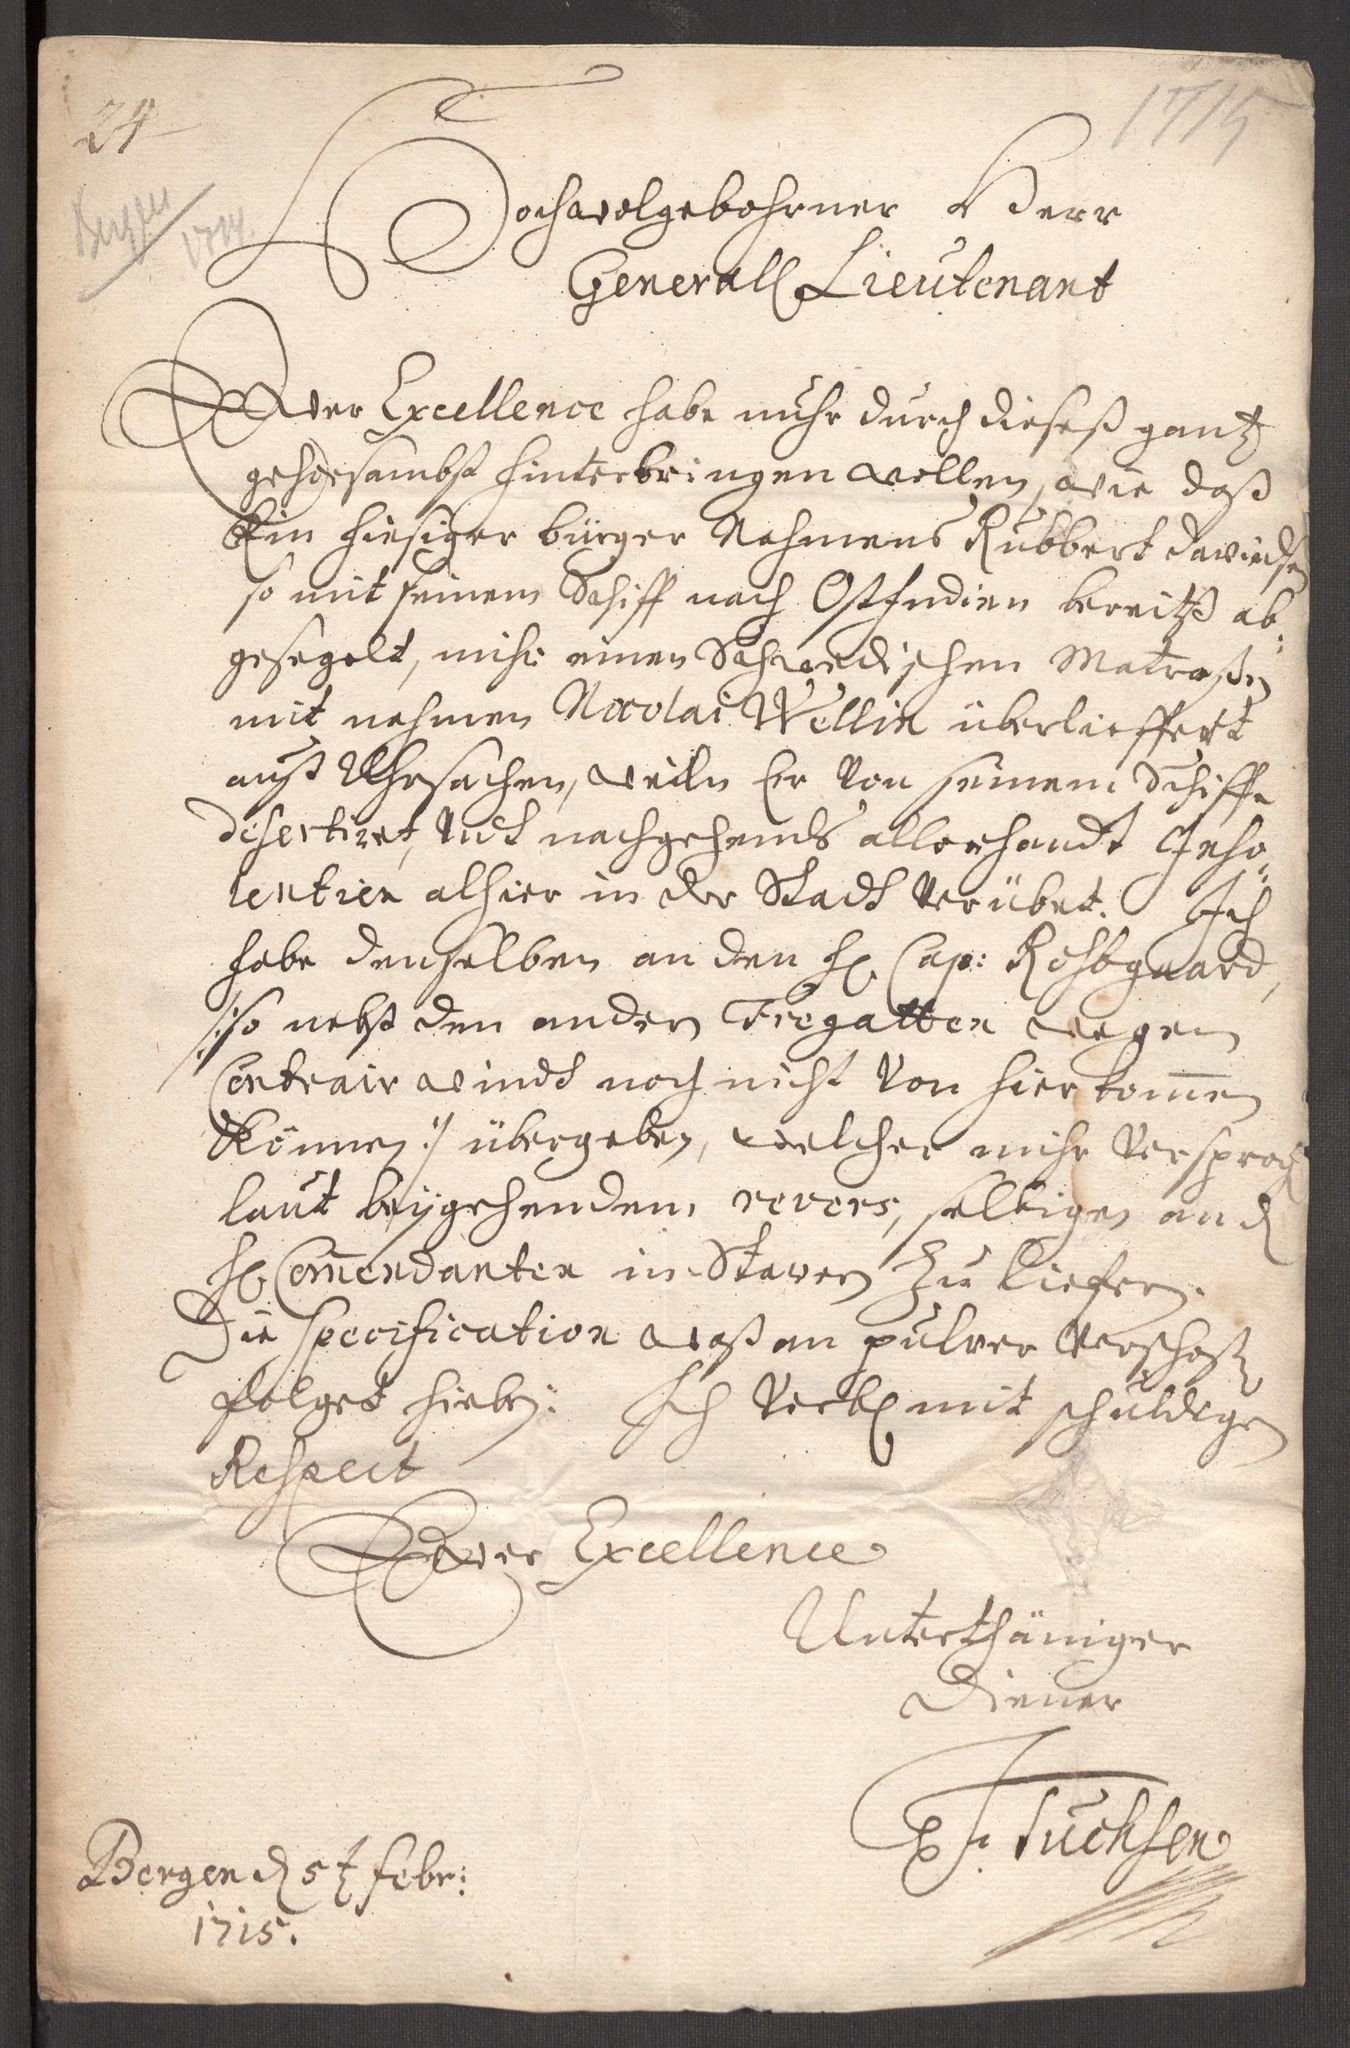 24
1715
Bergen
1714.
Hochwolgebohrner Herr
Generall Lieutenant
Ewer Excellence habe nuhr durch dieseß gantz
gehorsambst hinterbringen wollen, wie daß
Ein hiesiger bürger Nahmens Rubbert Davidsen
so mit seinem Schiff nach OstIndien bereitß ab:
gesegelt, mihr einen Schwedischen Matroßen
mit nahmen Nicolai Wellin überlieffert
auß Uhrsachen, weiln Er Von seinem Schiffe
disertiret, Undt nachgehends allerhandt Inso:
lentien alhier in der Stadt Verübet. Ich
habe denselben an den H. Cap: Rosbgaard,
/:so nebst den andern Fregatten wegen
Contrair windt noch nicht Von hier kom̄en
Können:/ übergeben, welcher mihr Versproch
laut beÿgehendem revers, selbigen an d
H. Com̄endanten in Stavern Zu liefern.
Die specification waß an pulver Verschoßen
folget hiebeÿ: Ich Verbl mit schuldigen
Respect
Ewer Excellence
Unterthäniger
Diener
Tuchsen
Bergen d 5t febr:
1715.